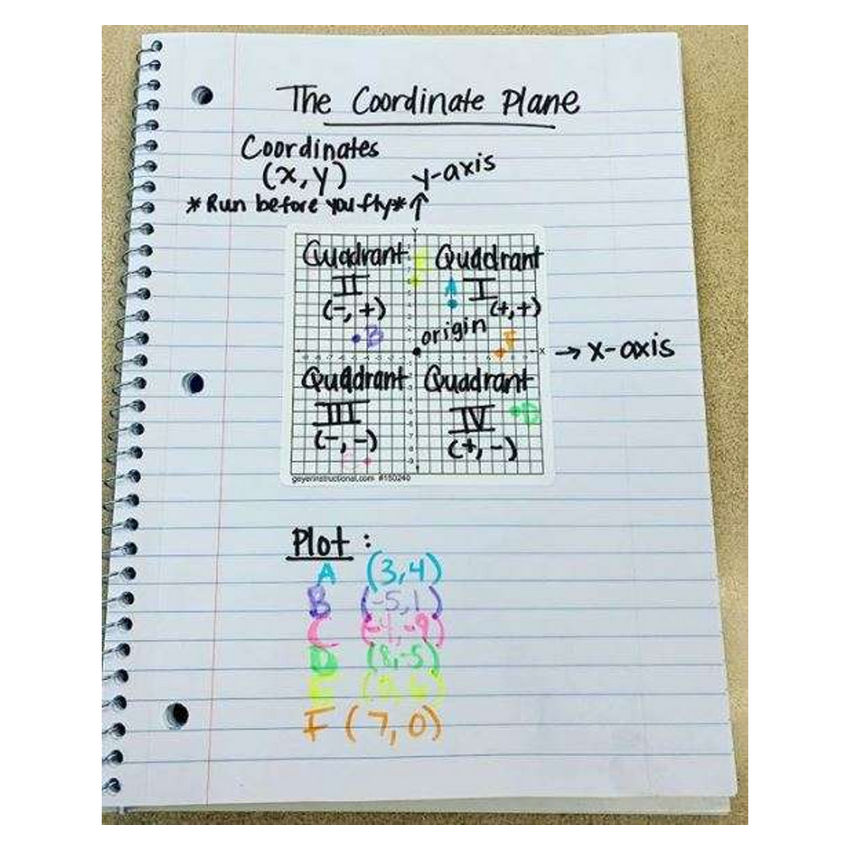 The Coordinate Plane
Coordinates
(x,y)
y-axis
*Run before you fly*
Y
Quadrant
II
(-,+)
Quadrant
I
(+,+)
A
B
origin
F
X
→ x-axis
Quadrant
III
(-,-)
Quadrant
IV
(+,-)
D
geyerinstructional.com #150240
Plot:
A (3,4)
B (-5,1)
C (-4,-9)
D (8,-5)
E (0,6)
F (7,0)